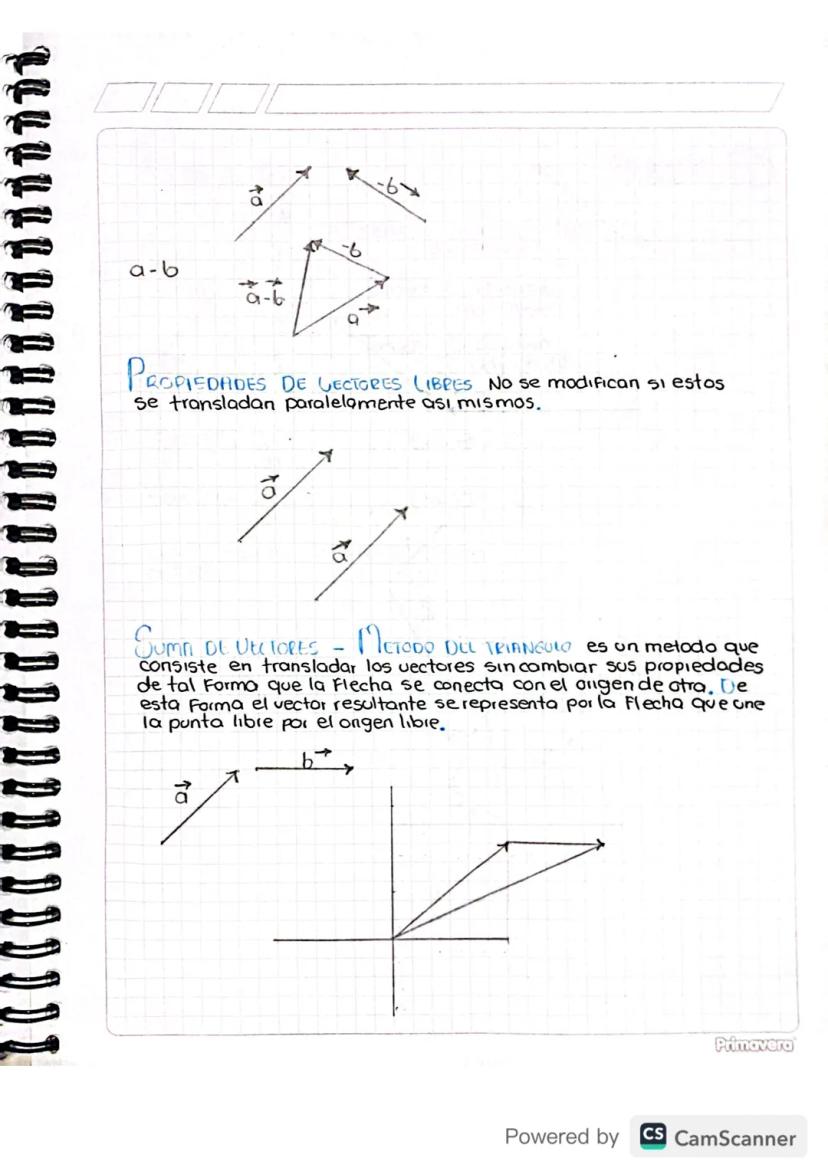 a⃗
-b→
-b
a-b
a⃗-b⃗
a→
PROPIEDADES DE VECTORES LIBRES No se modifican si estos
se transladan paralelamente asi mismos.
a⃗
a⃗
SUMA DE VECTORES - METODO DEL TRIANGULO es un metodo que
consiste en transladar los vectores sin cambiar sus propiedades
de tal Forma que la Flecha se conecta con el origen de otra. De
esta Forma el vector resultante se representa por la Flecha que une
la punta libre por el origen libre.
b→
a⃗
Primavera
Powered by CS CamScanner